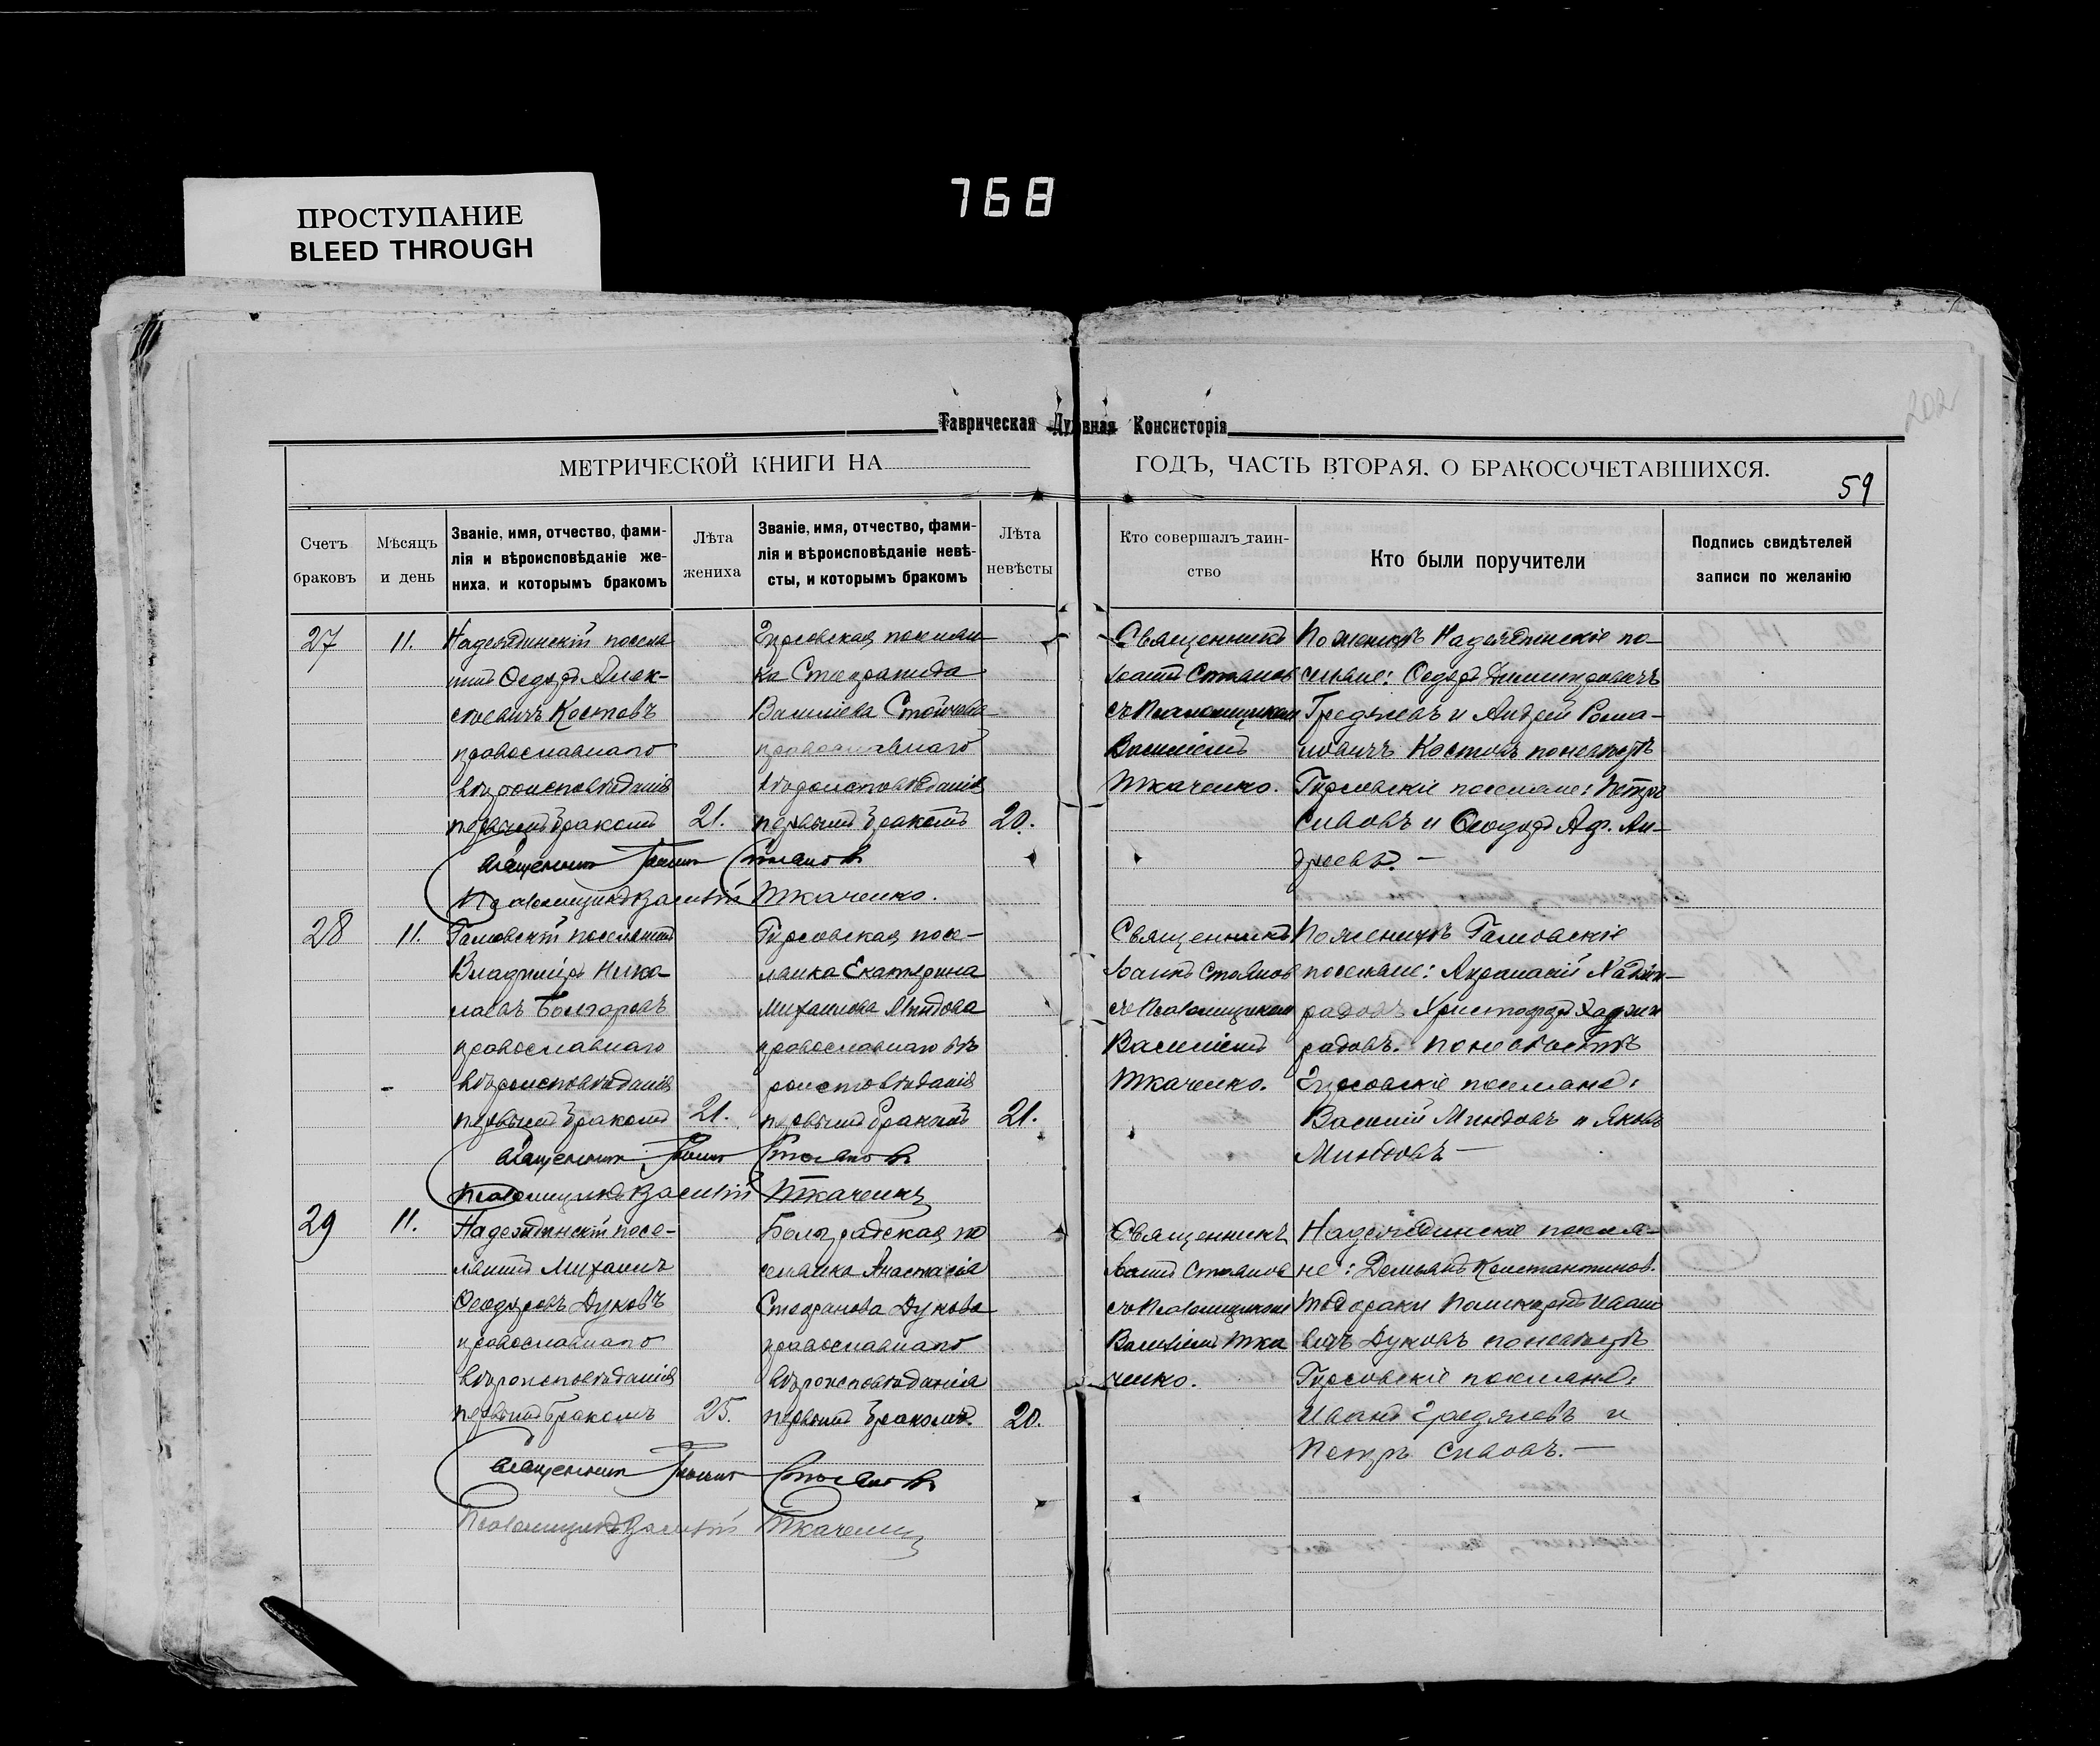 768
ПРОСТУПАНИЕ
BLEED THROUGH
202
Таврическая Духовная Консисторія
МЕТРИЧЕСКОЙ КНИГИ НА ГОДЪ, ЧАСТЬ ВТОРАЯ, О БРАКОСОЧЕТАВШИХСЯ.
59
Счетъ браковъ
Мѣсяцъ и день
Званіе, имя, отчество, фами-
лія и вѣроисповѣданіе же-
ниха, и которымъ бракомъ
Лѣта жениха
Званіе, имя, отчество, фами-
лія и вѣроисповѣданіе невѣ-
сты, и которымъ бракомъ
Лѣта невѣсты
Кто совершалъ таин-
ство
Кто были поручители
Подпись свидѣтелей
записи по желанію
27
11.
Надеждинскій поселя
нинъ Ѳеодоръ Алек-
сѣевичъ Костовъ
православнаго
вѣроисповѣданія
первымъ бракомъ
21.
Гирсовская поселян
ка Стефанида
Василіева Стойчева
православнаго
вѣроисповѣданія
первымъ бракомъ
20.
Священникъ
Іоаннъ Стояновъ
съ Псаломщикомъ
Василіемъ
Ткаченко.
По женихѣ Надеждинскіе по-
селяне: Ѳеодоръ Димитріевичъ
Греджевъ и Андрей Рома-
новичъ Костовъ по невѣстѣ
Гирсовскіе поселяне: Петръ
Славовъ и Ѳеодоръ Аф. Ан-
дреевъ. —
Священникъ Іоаннъ Стояновъ
Псаломщикъ Василій Ткаченко.
28
11.
Гамовскій поселянинъ
Владиміръ Нико
лаевъ Болгаровъ
православнаго
вѣроисповѣданія
первымъ бракомъ
21.
Гирсовская посе-
лянка Екатерина
Михаилова Миндова
православнаго вѣ
роисповѣданія
первымъ бракомъ
21.
Священникъ
Іоаннъ Стояновъ
съ Псаломщикомъ
Василіемъ
Ткаченко.
По женихѣ Гамовскіе
поселяне: Хаджи
радовъ Христофоръ Хаджи
радовъ. по невѣстѣ
Гирсовскіе поселяне:
Василій Миндовъ и Яковъ
Миндовъ —
Священникъ Іоаннъ Стояновъ
Псаломщикъ Василій Ткаченко
29
11.
Надеждинскій посе-
лянинъ Михаилъ
Ѳеодоровъ Дуковъ
православнаго
вѣроисповѣданія
первымъ бракомъ
25.
Болградская по
селянка Анастасія
Стефанова Дукова
православнаго
вѣроисповѣданія
первымъ бракомъ.
20.
Священникъ
Іоаннъ Стояновъ
съ Псаломщикомъ
Василіемъ Тка
ченко.
Надеждинскіе поселя-
не: Демьянъ Константинов.
Тодораки Поликарпъ Ивано
вичъ Дуковъ по невѣстѣ
Гирсовскіе поселяне:
Иванъ Греджевъ и
Петръ Славовъ. —
Священникъ Іоаннъ Стояновъ
Псаломщикъ Василій Ткаченко